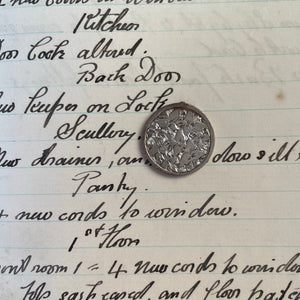 Kitchen
Door Lock altered.
Back Door
New keeper on Lock
Scullery.
New drainer, and window sill
Pantry.
4 new cords to window.
1st Floor
Front room 1 = 4 New cords to window
sash eased, and floor